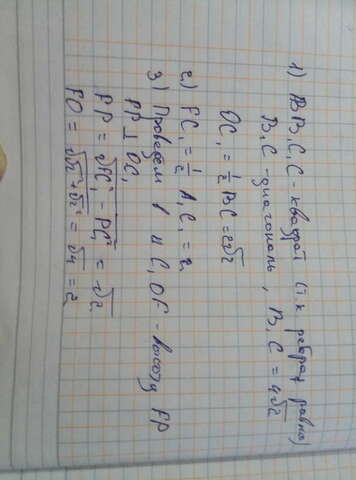 1) BB₁C₁C - квадрат (т.к ребра равны)
B₁C - диагональ, B₁C = 4√2
OC₁ = ½ BC = 2√2
2) FC₁ = ½ A₁C₁ = 2
3) Проведем в △ C₁OF - высоту FP
FP ⊥ OC₁
FP = √FC₁² - PC₁² = √2
FO = √√2² + √2² = √4 = 2